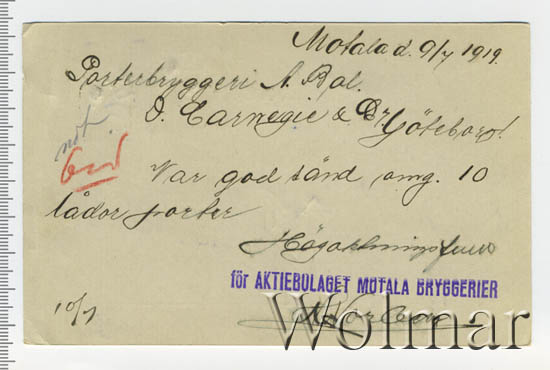 Motala d. 9/7 1919.
Porterbryggeri A. Bol.
D. Carnegie & Co, Göteborg!
not
Var god sänd omg. 10
lådor porter
Högaktningsfullt
för AKTIEBOLAGET MOTALA BRYGGERIER
10/7
Wolmar